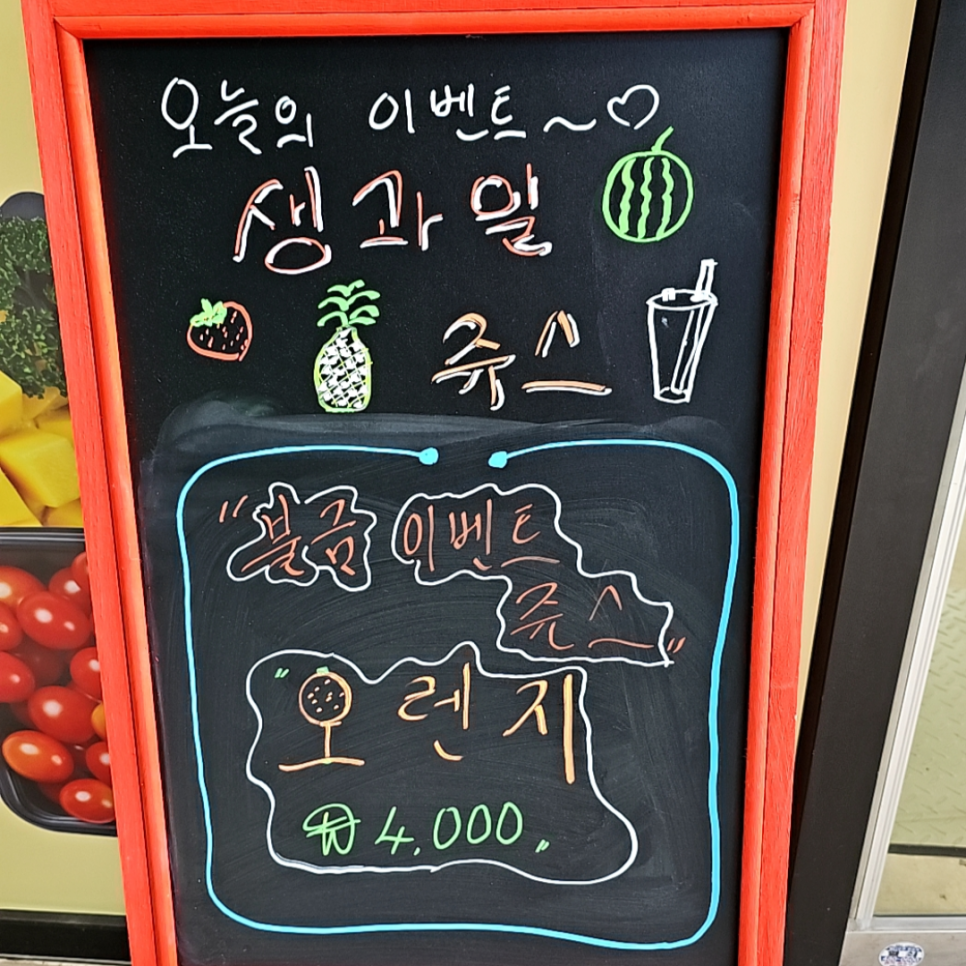 오늘의 이벤트~♡
생과일
쥬스
"불금 이벤트
쥬스"
"오렌지
₩4,000."